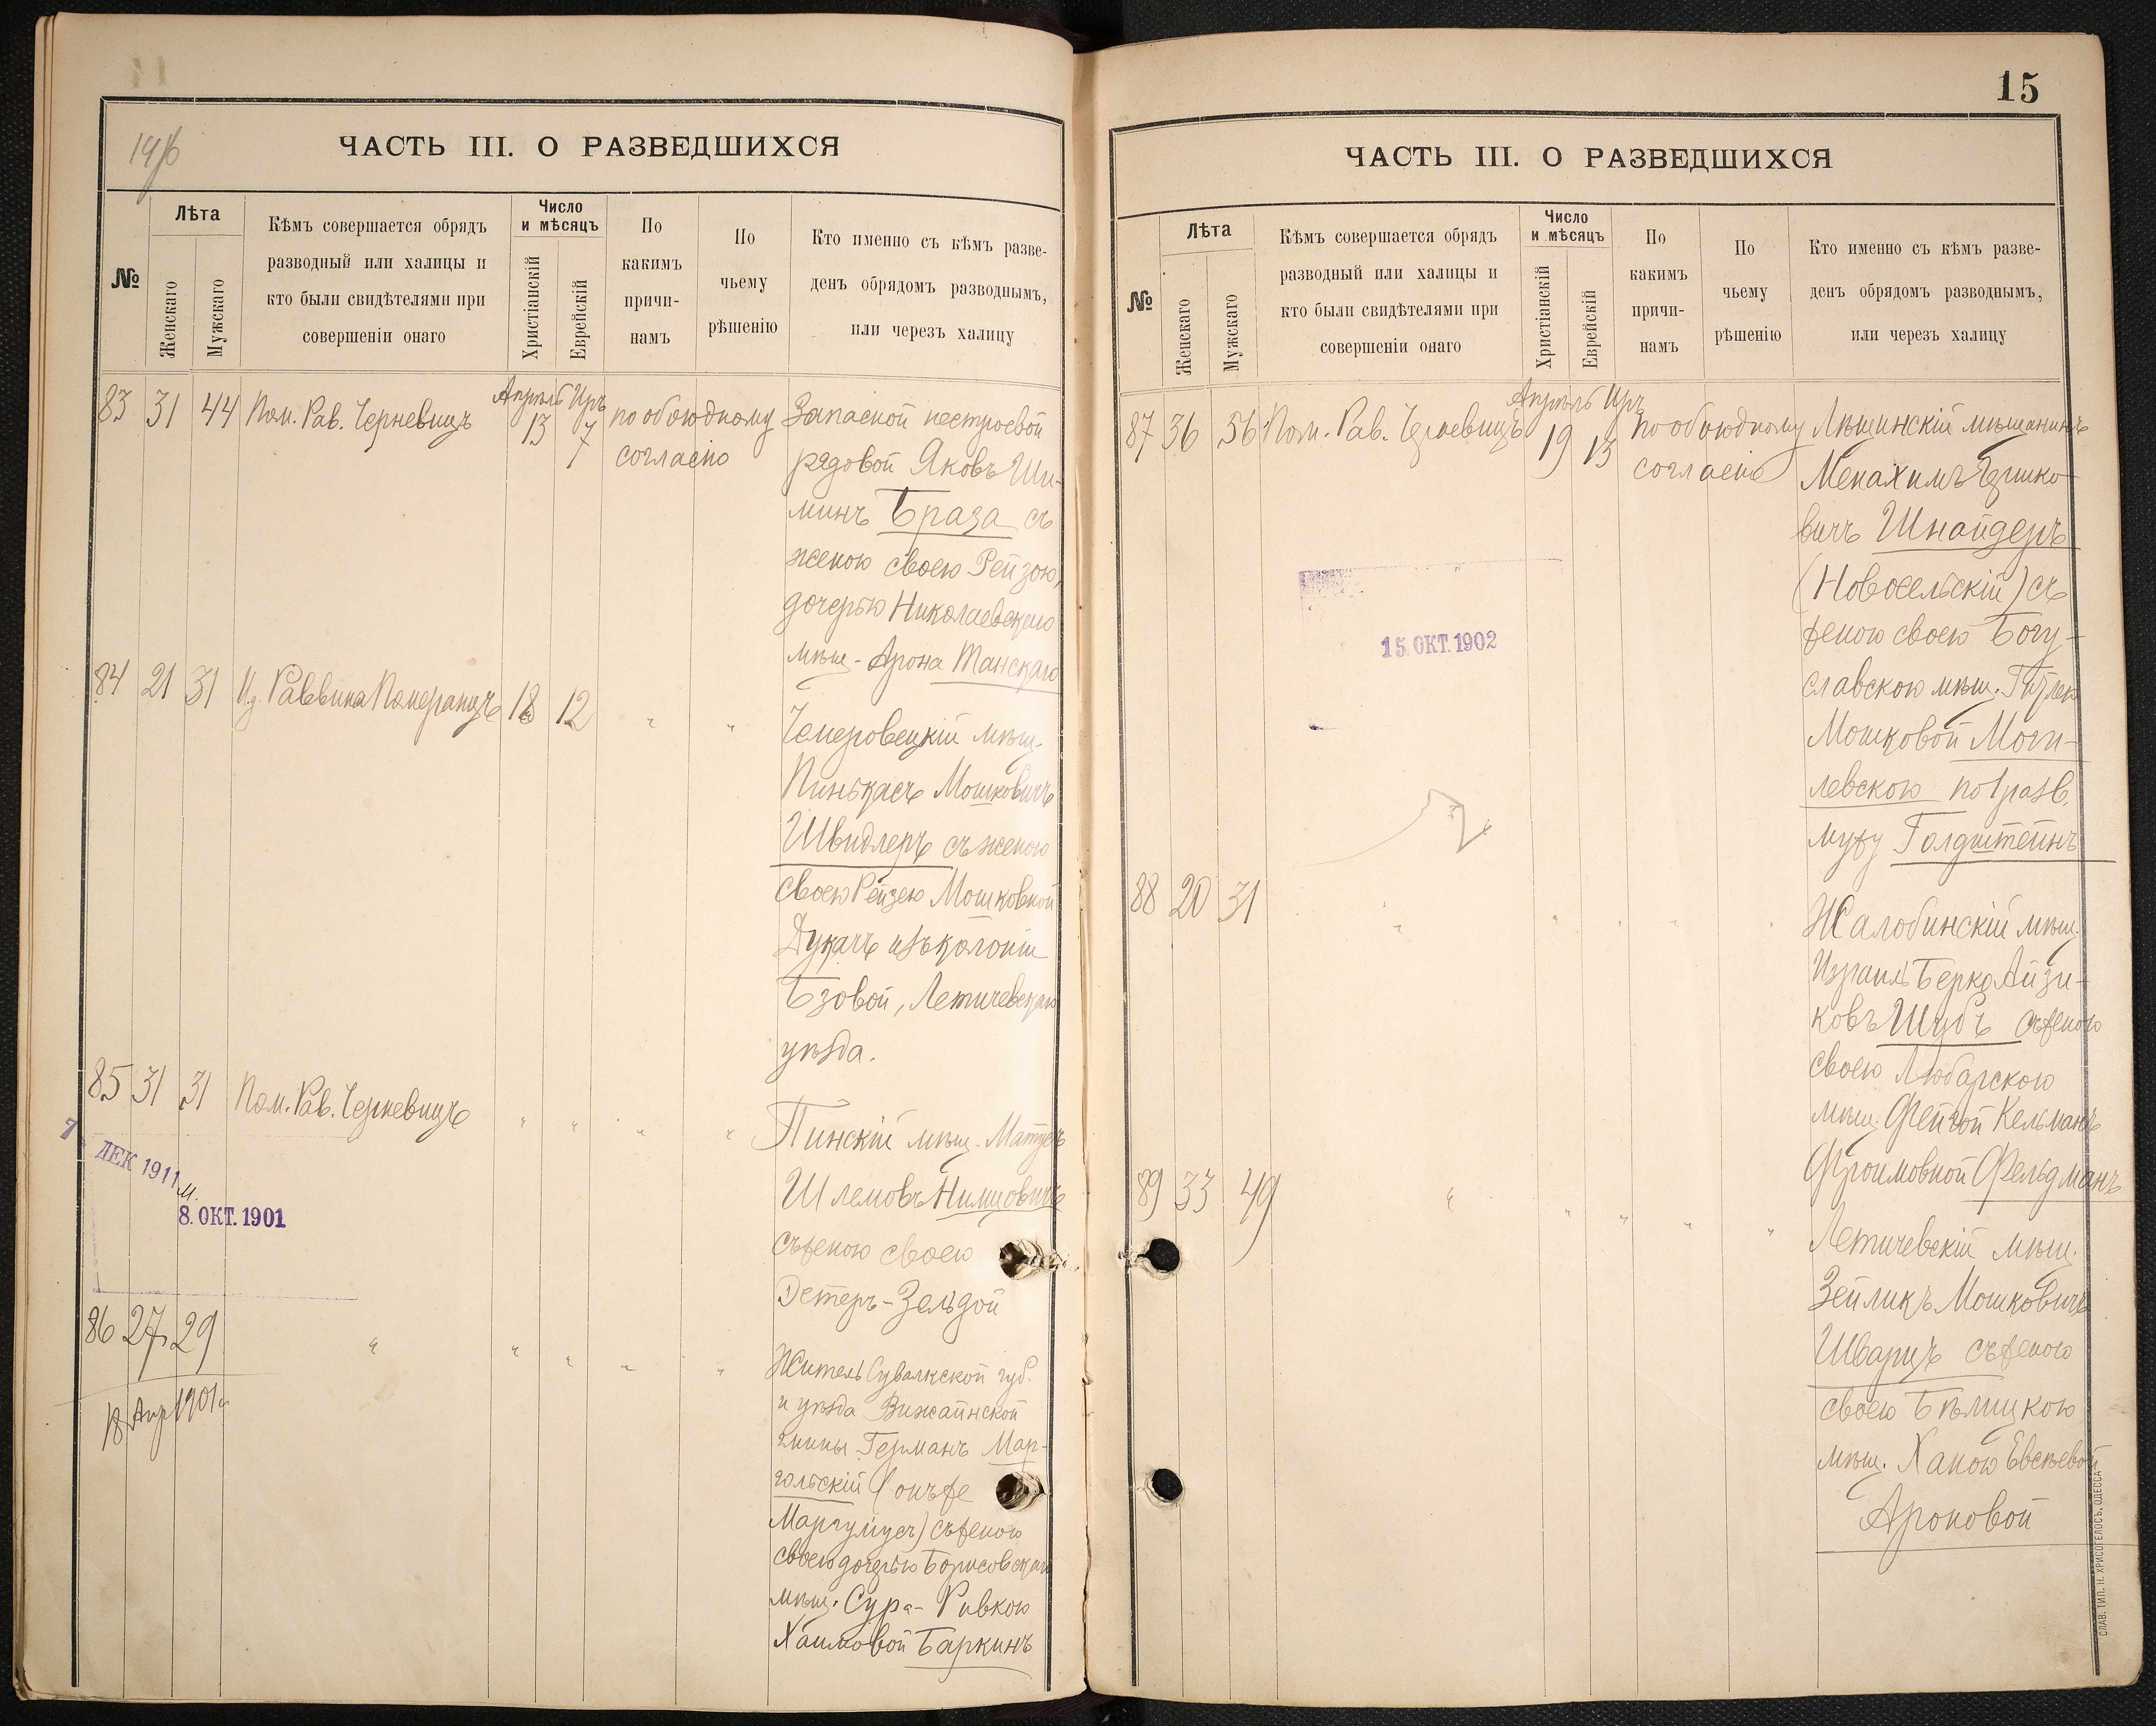 14/б
ЧАСТЬ III. О РАЗВЕДШИХСЯ
№
Лѣта
Женскаго
Мужскаго
Кѣмъ совершается обрядъ
разводный или халицы и
кто были свидѣтелями при
совершеніи онаго
Число
и мѣсяцъ
Христіанскій
Еврейскій
По
какимъ
причи-
намъ
По
чьему
рѣшенію
Кто именно съ кѣмъ разве-
денъ обрядомъ разводнымъ,
или черезъ халицу
83 31 44 Пом. Рав. Черневицъ Апрѣль 13 Иръ 7 по обоюдному
согласію
Запасной нестроевой
рядовой Яковъ Ши-
минъ Браза съ
женою своею Рейзою,
дочерью Николаевскаго
мѣщ. Арона Танскаго
84 21 31 Из. Раввина Померанцъ 18 12 " "
Чемеровецкій мѣщ.
Пинькасъ Мошковичъ
Швидлеръ съ женою
своею Рейзею Мошковной
Дукачъ изъ колоніи
Бзовой, Летичевскаго
уѣзда.
85 31 31 Пом. Рав. Черневицъ " " " "
Пинскій мѣщ. Матусъ
Шлемовъ Нимцовичъ
съ женою своею
Эстеръ-Зельдой
7 ДЕК 1911
8. ОКТ. 1901
86 27 29 " " " " "
18 Апр 1901 г
Житель Сувалкской губ.
и уѣзда Вижайнской
гмины Германъ Мар-
гольскій (онъ же
Маргулиусъ) съ женою
своею дочерью Борисовскаго
мѣщ. Сура-Ривкою
Хаимовой Баркинъ
15
ЧАСТЬ III. О РАЗВЕДШИХСЯ
№
Лѣта
Женскаго
Мужскаго
Кѣмъ совершается обрядъ
разводный или халицы и
кто были свидѣтелями при
совершеніи онаго
Число
и мѣсяцъ
Христіанскій
Еврейскій
По
какимъ
причи-
намъ
По
чьему
рѣшенію
Кто именно съ кѣмъ разве-
денъ обрядомъ разводнымъ,
или черезъ халицу
87 36 56 Пом. Рав. Черневицъ Апрѣль 19 Иръ 13 по обоюдному
согласію
Мѣщанинъ
Менахимъ Гершко-
вичъ Шнайдеръ
(Новосельскій) съ
женою своею Богу-
славскою мѣщ. Гитлею
Мошковой Моги-
левскою по 1 разв.
мужу Голдштейнъ
15. ОКТ. 1902
88 20 31 " " " " "
Жалобинскій мѣщ.
Израиль Берко Айзи-
ковъ Шубъ съ женою
своею Любарскою
мѣщ. Фейгой Кельманъ
Фроимовной Фельдманъ
89 33 49 " " " " "
Летичевскій мѣщ.
Зейликъ Мошковичъ
Шварцъ съ женою
своею Бѣлицкою
мѣщ. Ханою Евсѣевой
Ароновой
СЛАВ. ТИП. Н. ХРИСОГЕЛОСЪ, ОДЕССА